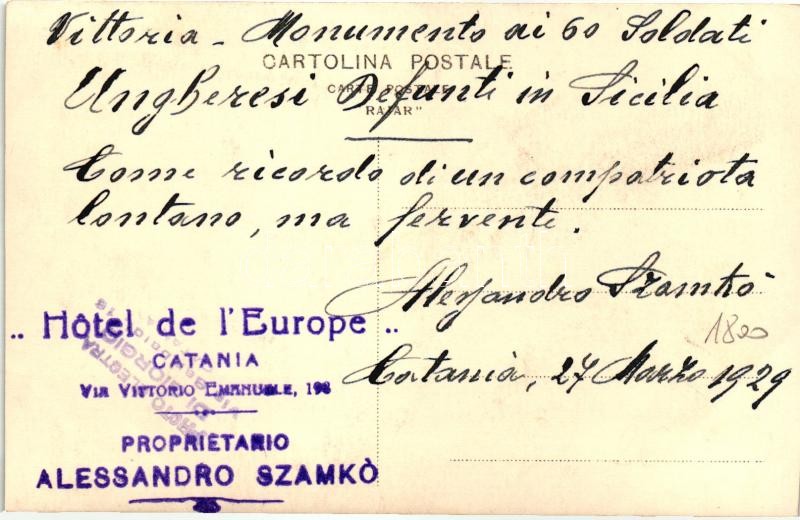 Vittoria - Monumento ai 60 Soldati
CARTOLINA POSTALE
CARTE POSTALE
Ungheresi Defunti in Sicilia
RAJAR"
Come ricordo di un compatriota
lontano, ma fervente.
Alessandro Szamkò
1800
Catania, 27 Marzo 1929
.. Hôtel de l'Europe ..
CATANIA
VIA VITTORIO EMANUELE, 198
PROPRIETARIO
ALESSANDRO SZAMKÒ